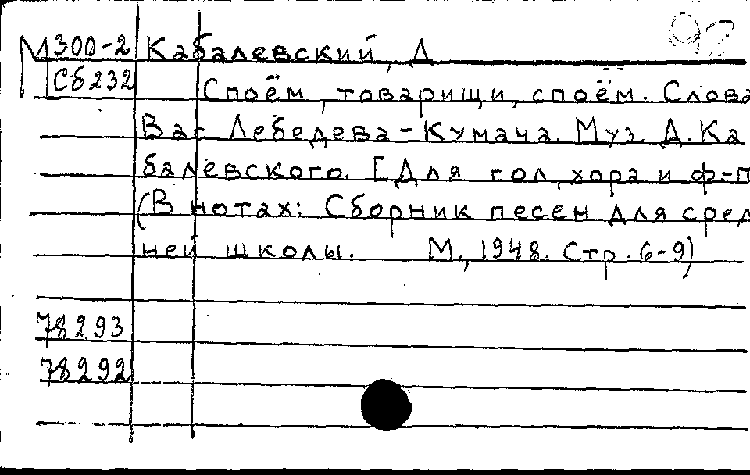 М300-2 Кабалевский, Д
Сб232
Споём, товарищи, споём. Слова
Вас Лебедева-Кумача. Муз. Д. Ка
балевского. [Для гол, хора и ф-п
(В нотах: Сборник песен для сред
ней школы. М., 1948. Стр. 6-9)
78293
78292